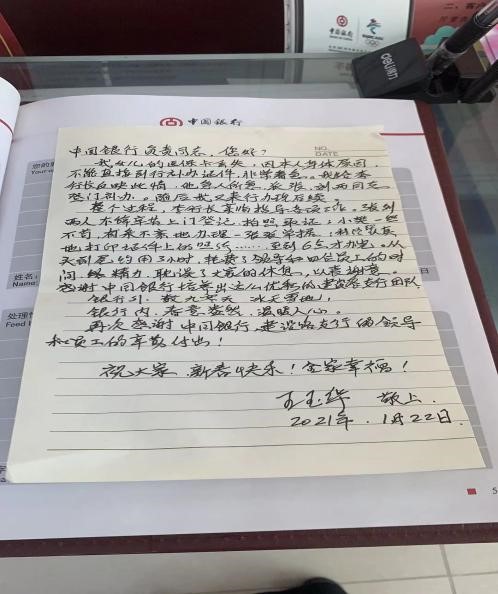 中国银行
BANK OF CHINA
BEIJING 2022
deli得力
中国银行
NO.
DATE
中国银行负责同志，您好？
我女儿的医保卡丢失，因本人身体原因，
不能直接到行外办证件，非常着急。我给李
行长反映此情，他急人所急，派张、刘两同志
登门补办。随后我又来行办理后续。
整个过程，李行长亲临指导各项工作。张刘
两人不停车去上门登记，拍照取证，小樊一丝
不苟，有条不紊地办理一张张单据；
他打印证件上的照片……直到6点才办妥。从
天到底约用3小时，耗费了领导和四位员工的时
间、精力，耽误了大家的休息，以表谢意。
感谢中国银行培养出这么优秀的建设路支行团队
银行外，数九寒天 冰天雪地；
银行内，春意盎然，温暖人心。
再次感谢中国银行建设路支行的领导
和员工的辛勤付出！
祝大家 新春快乐！全家幸福！
王玉华 敬上.
2021年.1月22日.
姓名：
Name:
处理情
Feed
5